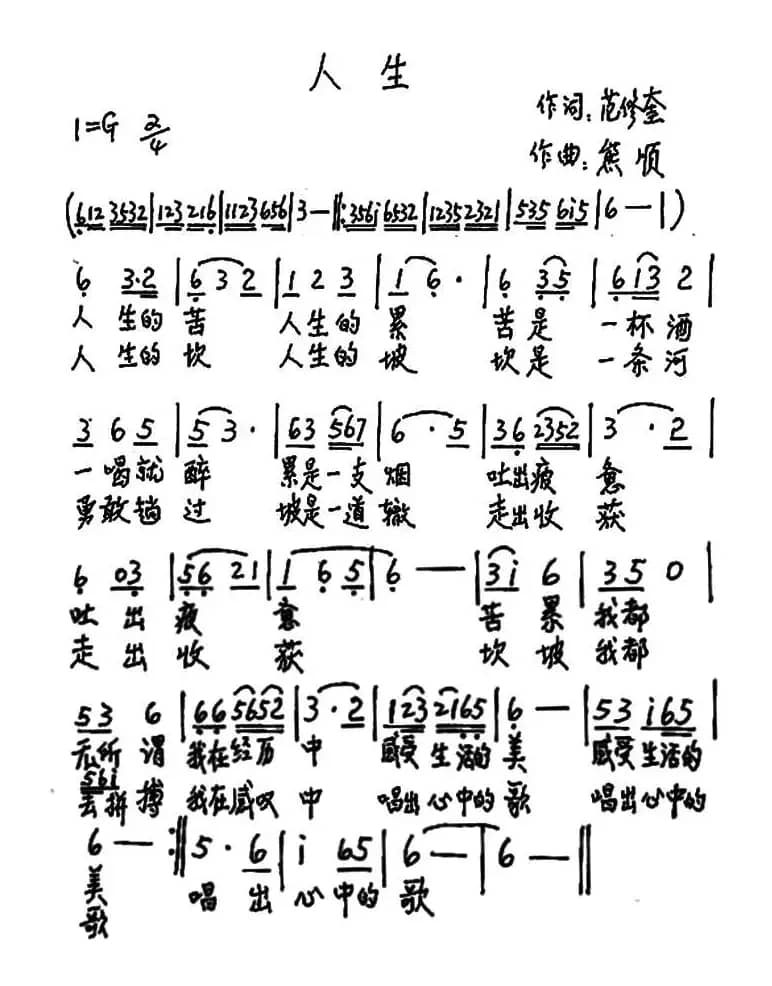 人 生
作词:范修奎
1=G 2/4
作曲:熊顺
(612 3532|123 216|1123 656|3—‖:356i 6532|1235 2321|535 6i5|6—|)
6 3·2|6 3 2|1 2 3|1 6·|6 35|6i3 2
人 生的 苦 人生的 累 苦是 一杯酒
人 生的 坎 人生的 坡 坎是 一条河
3 6 5|5 3·|63 567|6·5|36 2352|3·2
一喝就 醉 累是一支 烟 吐出疲 惫
勇敢趟 过 坡是一道 辙 走出收 获
6 03|56 21|1 6 5|6—|3i 6|35 0|
吐 出 疲 惫 苦 累 我都
走 出 收 获 坎 坡 我都
53 6|66 5652|3·2|123 2165|6—|53 i65|
无所 谓 我在经历 中 感受 生活的 美 感受生活的
56i
去拼 搏 我在感叹 中 唱出心中的 歌 唱出心中的
6—:‖5·6|i 65|6—|6—‖
美 唱 出 心 中的 歌
歌